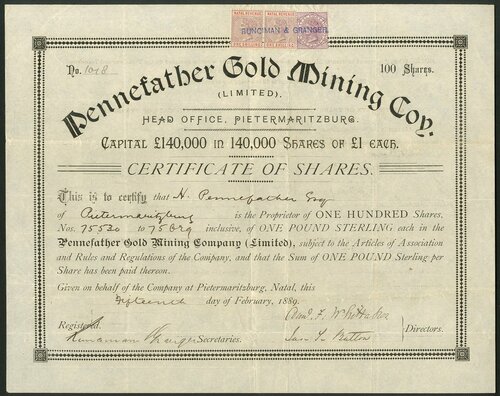 NATAL REVENUE NATAL REVENUE
RUNCIMAN & GRANGER
No. 1018
100 Shares.
Pennefather Gold Mining Coy.
(LIMITED).
HEAD OFFICE, PIETERMARITZBURG.
CAPITAL £140,000 IN 140,000 SHARES OF £1 EACH.
CERTIFICATE OF SHARES.
This is to certify that H. Pennefather Esq
of Pietermaritzburg is the Proprietor of ONE HUNDRED Shares,
Nos. 75530 to 75629 inclusive, of ONE POUND STERLING each in the
Pennefather Gold Mining Company (Limited), subject to the Articles of Association
and Rules and Regulations of the Company, and that the Sum of ONE POUND Sterling per
Share has been paid thereon.
Given on behalf of the Company at Pietermaritzburg, Natal, this
fifteenth day of February, 1889.
Registered.
Secretaries.
Directors.